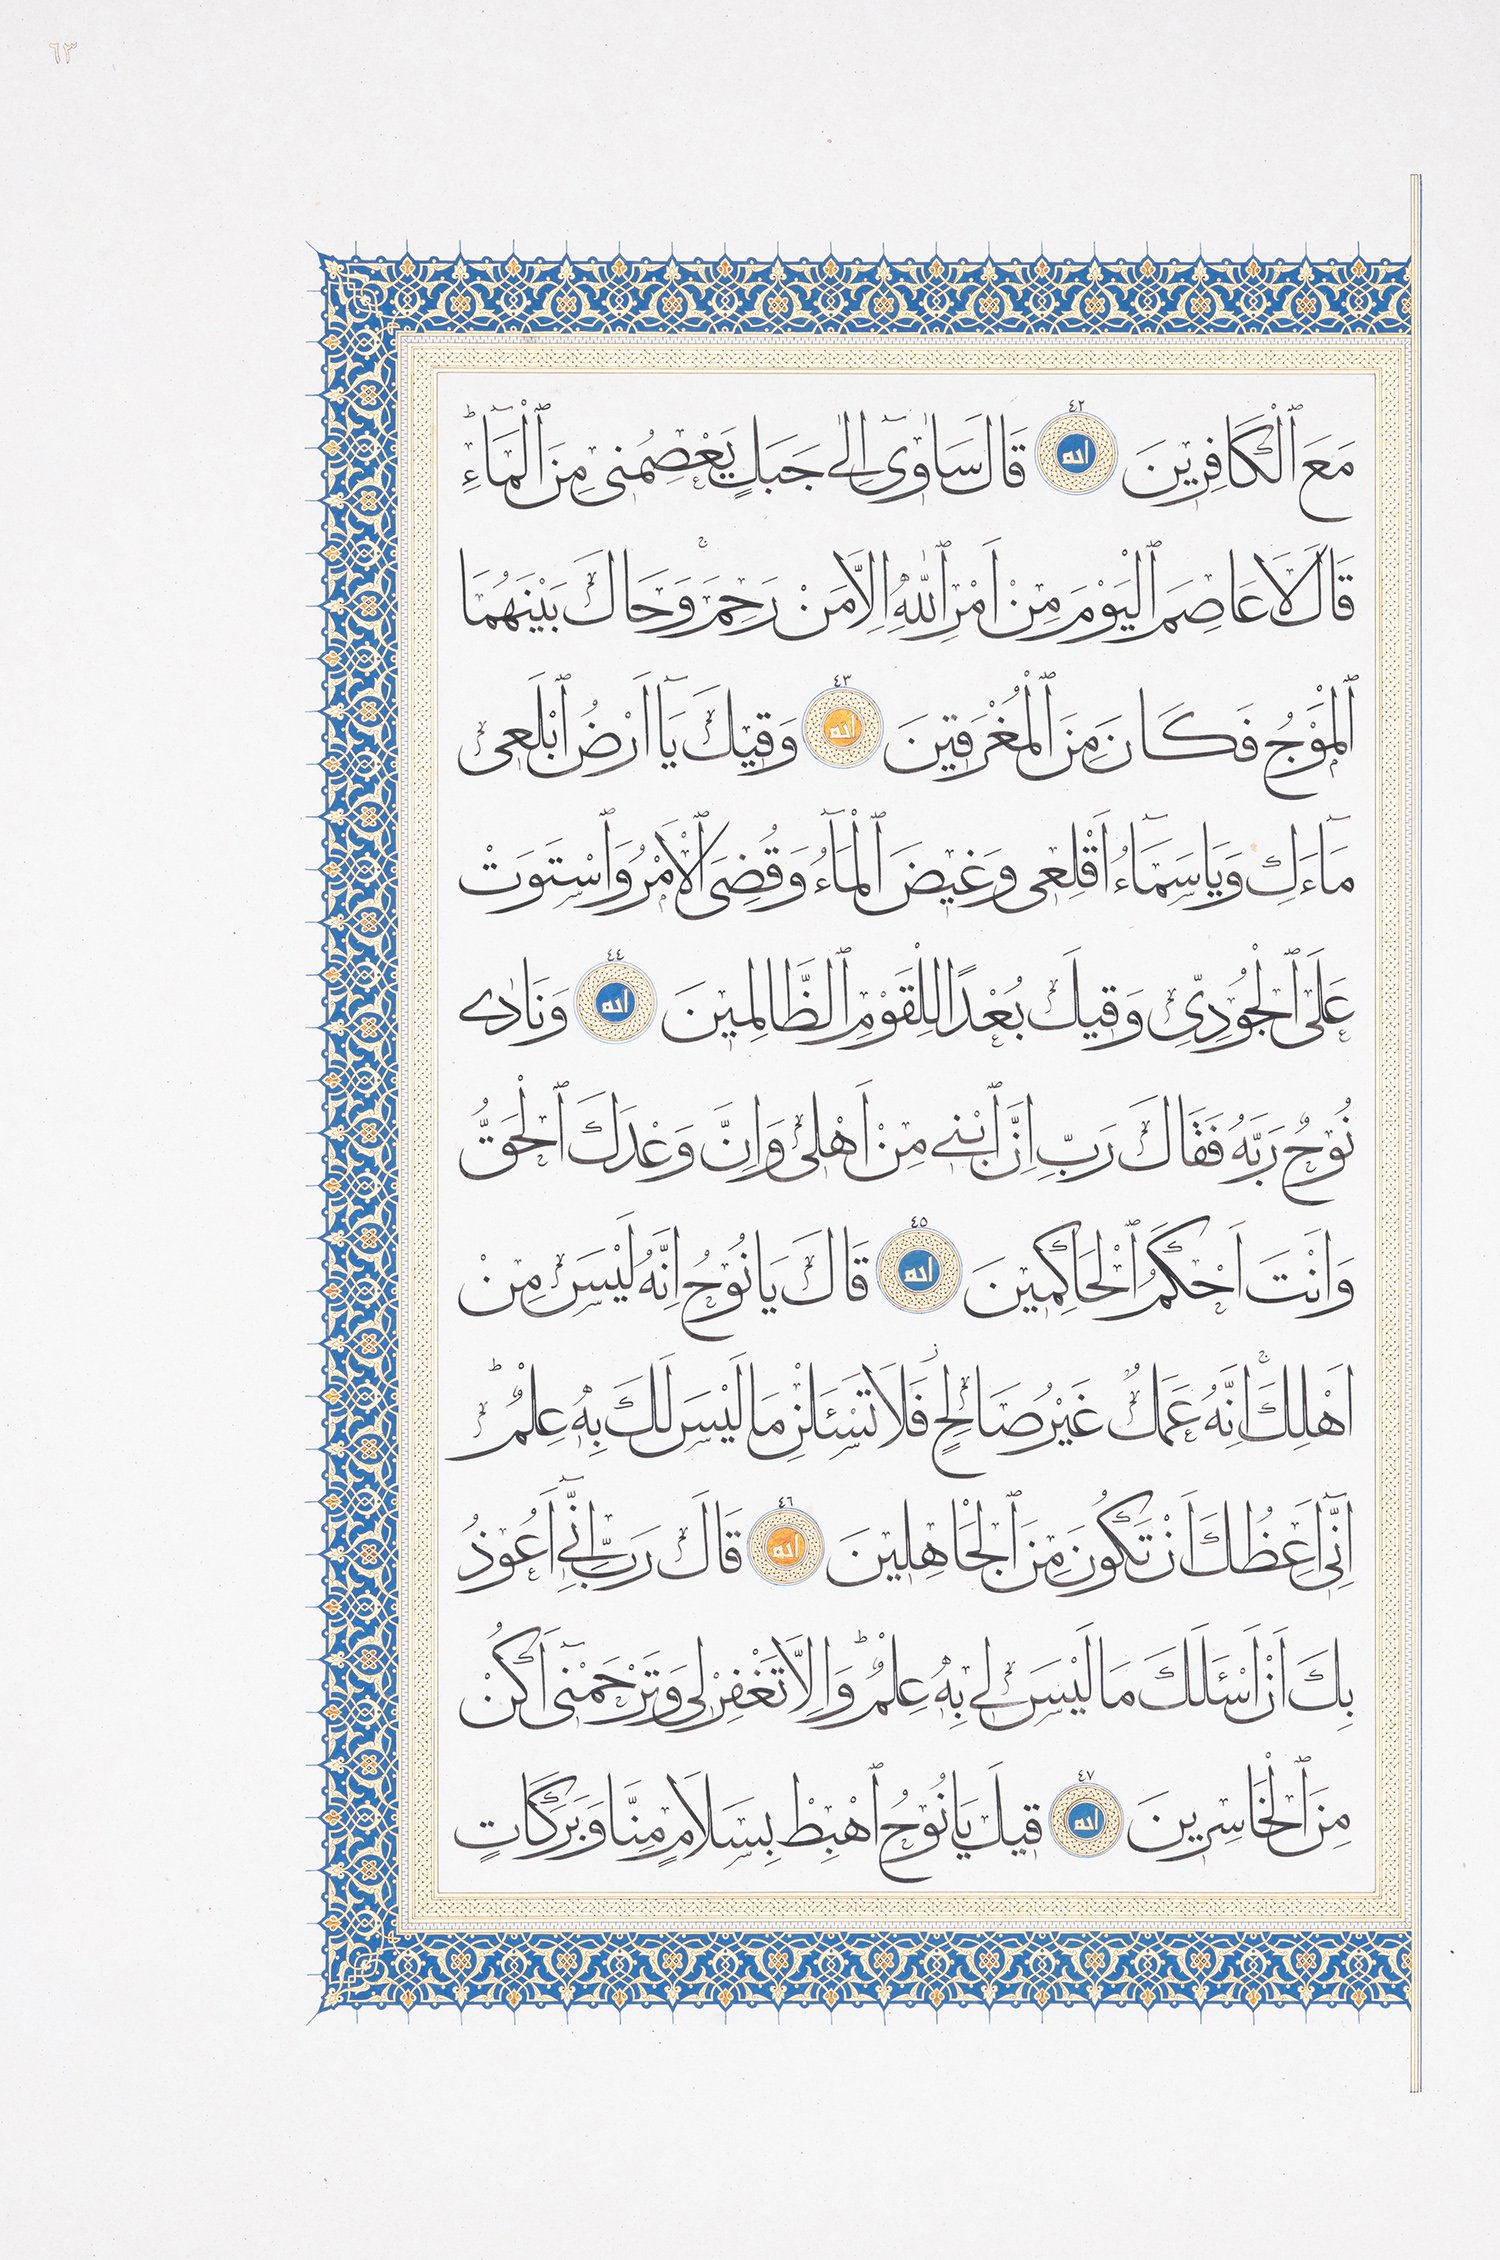 ٦٣
مَعَ ٱلْكَافِرِينَ ٤٢ قَالَ سَاٰوٓى اِلٰى جَبَلٍ يَعْصِمُنى مِنَ ٱلْمَٓاءِۜ
قَالَ لَا عَاصِمَ ٱلْيَوْمَ مِنْ اَمْرِ ٱللّٰهِ اِلَّا مَنْ رَحِمَۚ وَحَالَ بَيْنَهُمَا
ٱلْمَوْجُ فَكَانَ مِنَ ٱلْمُغْرَقينَ ٤٣ وَقيلَ يَٓا اَرْضُ ٱبْلَعى
مَٓاءَكِ وَيَا سَمَٓاءُ اَقْلِعى وَغيضَ ٱلْمَٓاءُ وَقُضِىَ ٱلْاَمْرُ وَٱسْتَوَتْ
عَلَى ٱلْجُودِىِّ وَقيلَ بُعْدًا لِلْقَوْمِ ٱلظَّالِمينَ ٤٤ وَنَادٰى
نُوحٌ رَبَّهُ فَقَالَ رَبِّ اِنَّ ٱبْنى مِنْ اَهْلى وَاِنَّ وَعْدَكَ ٱلْحَقُّ
وَاَنْتَ اَحْكَمُ ٱلْحَاكِمينَ ٤٥ قَالَ يَا نُوحُ اِنَّهُ لَيْسَ مِنْ
اَهْلِكَۚ اِنَّهُ عَمَلٌ غَيْرُ صَالِحٍۘ فَلَا تَسْـَٔلْنِ مَا لَيْسَ لَكَ بِهٖ عِلْمٌۜ
اِنّٓى اَعِظُكَ اَنْ تَكُونَ مِنَ ٱلْجَاهِلينَ ٤٦ قَالَ رَبِّ اِنّٓى اَعُوذُ
بِكَ اَنْ اَسْـَٔلَكَ مَا لَيْسَ لى بِهٖ عِلْمٌۜ وَاِلَّا تَغْفِرْ لى وَتَرْحَمْنٓى اَكُنْ
مِنَ ٱلْخَاسِرينَ ٤٧ قيلَ يَا نُوحُ ٱهْبِطْ بِسَلَامٍ مِنَّا وَبَرَكَاتٍ